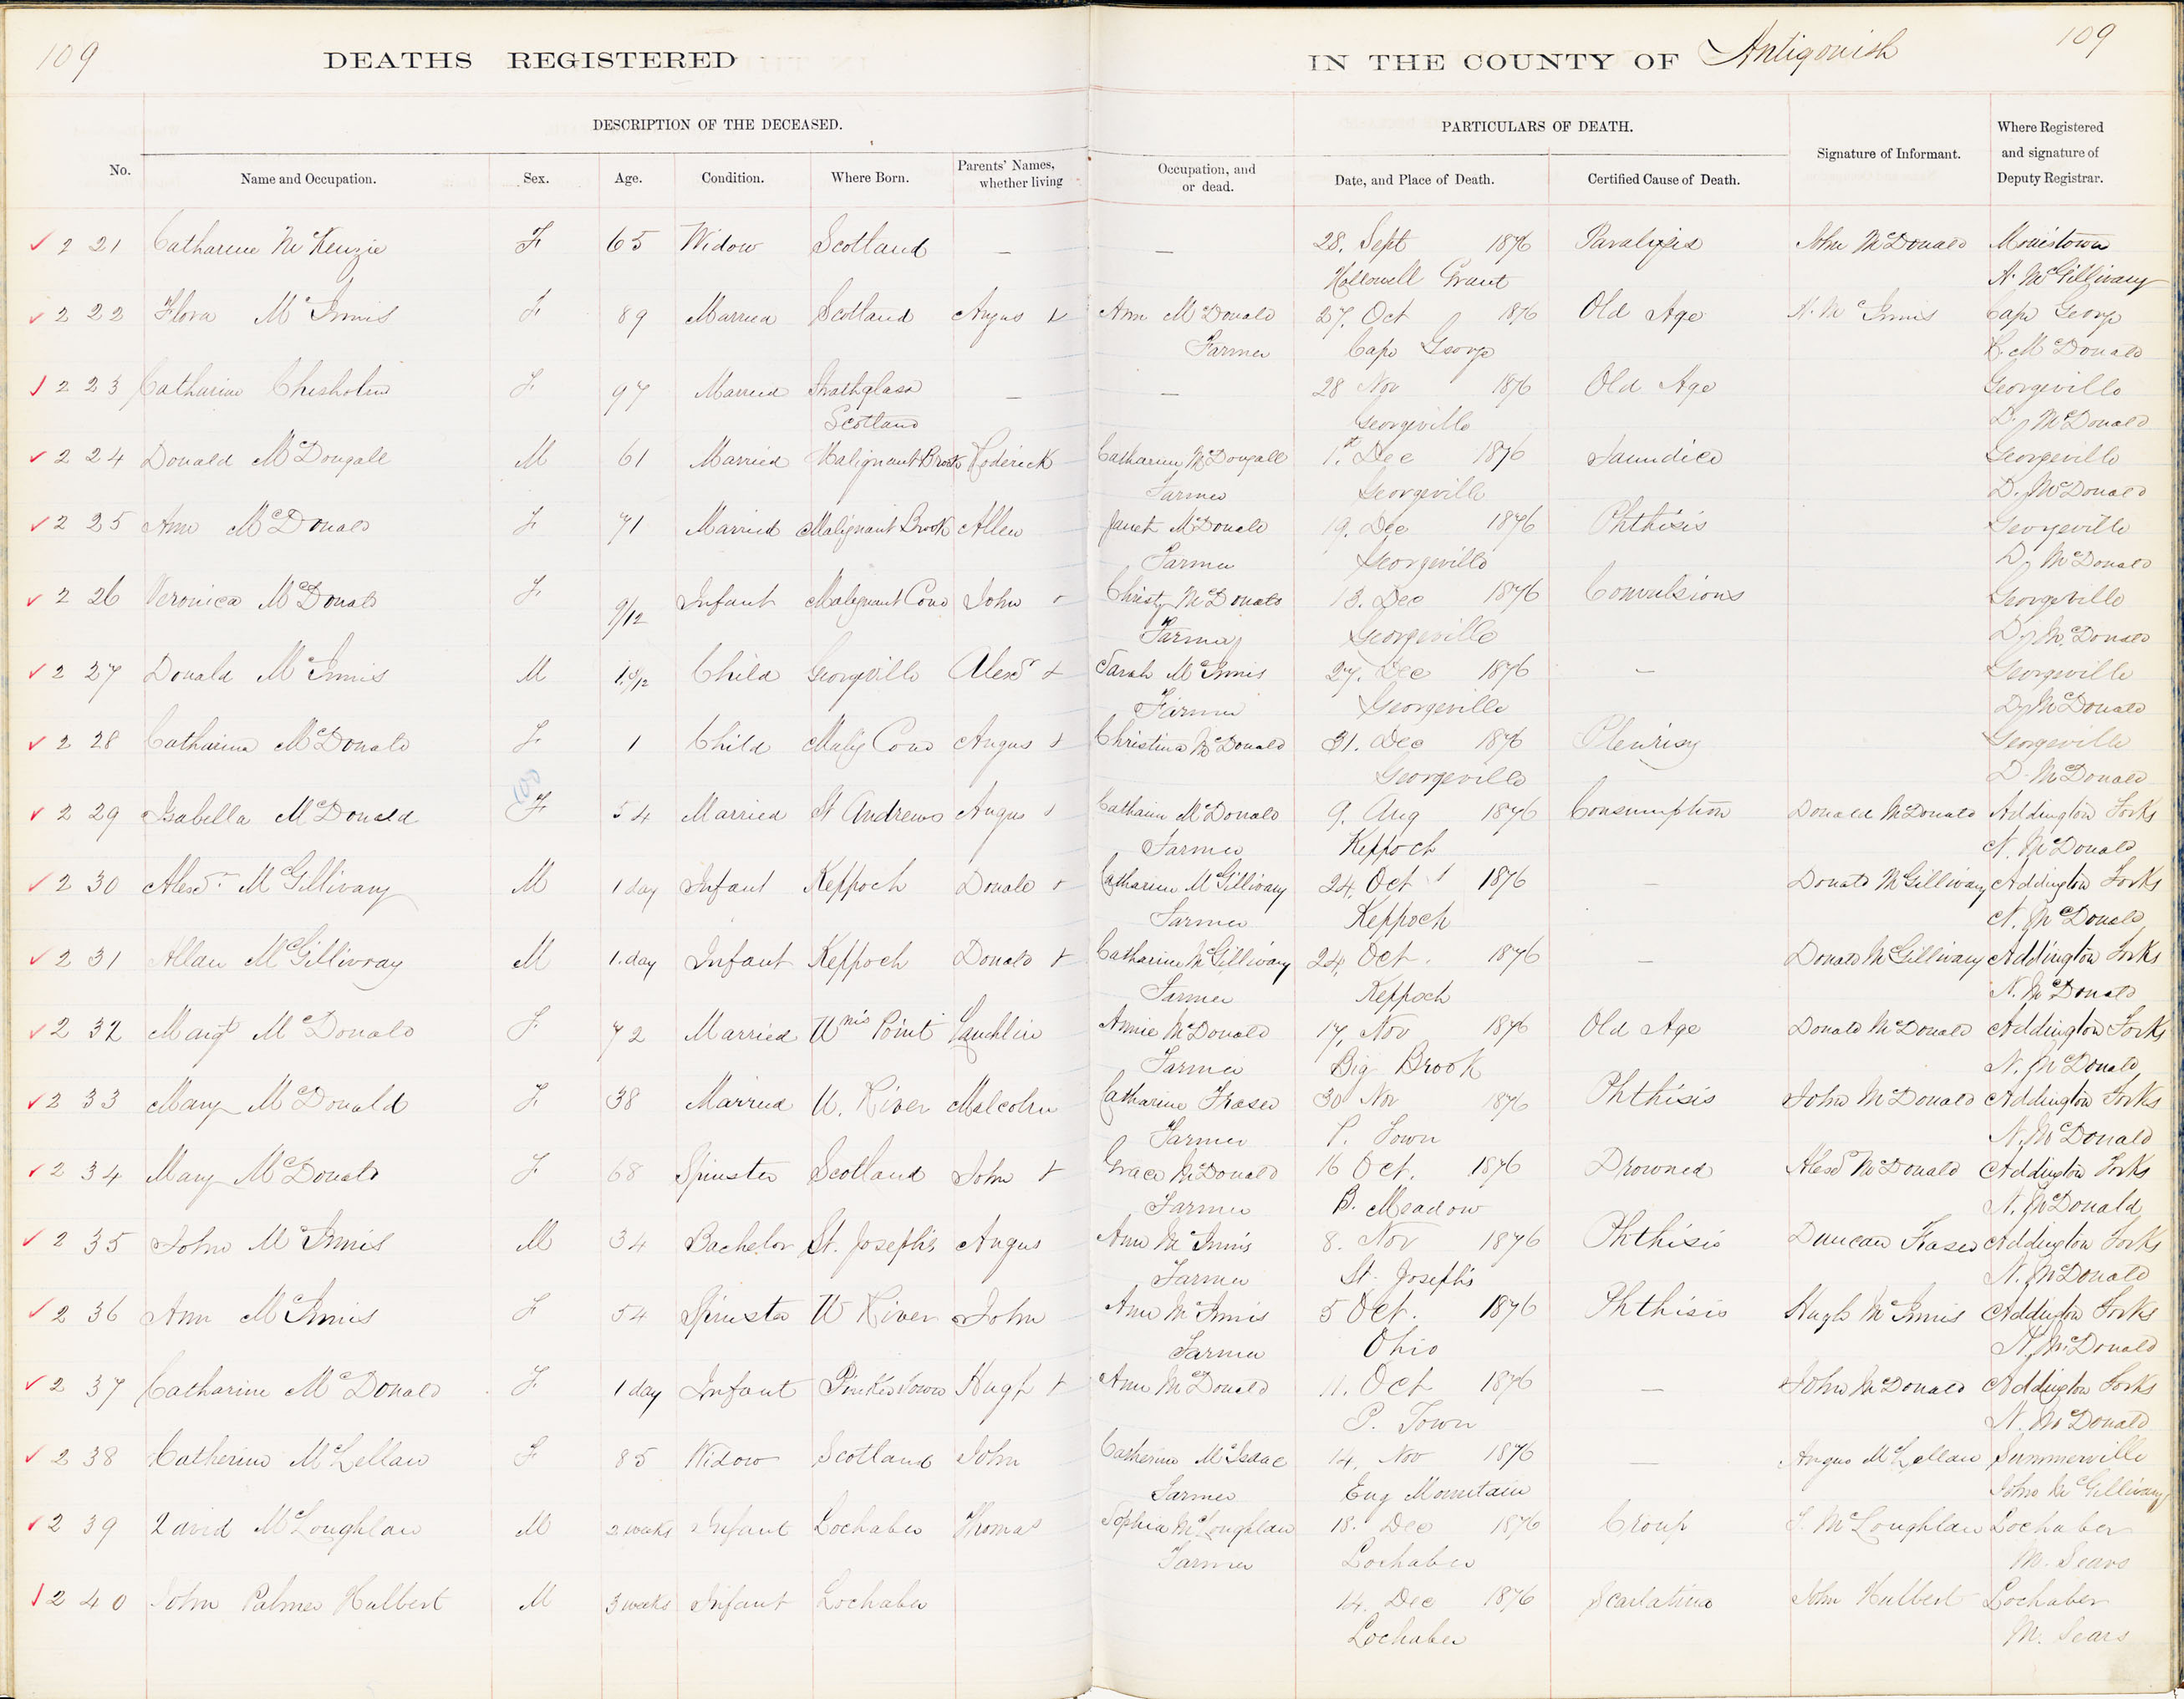 109
DEATHS REGISTERED
IN THE COUNTY OF Antigonish
109
DESCRIPTION OF THE DECEASED.
PARTICULARS OF DEATH.
No.
Name and Occupation.
Sex.
Age.
Condition.
Where Born.
Parents' Names, whether living
Occupation, and or dead.
Date, and Place of Death.
Certified Cause of Death.
Signature of Informant.
Where Registered and signature of Deputy Registrar.
2 21 Catharine McKenzie F 65 Widow Scotland — — 28. Sept 1876 Paralysis John McDonald Morristown
Hallowell Grant A. McGillivary
2 22 Flora McInnis F 89 Married Scotland Angus & Ann McDonald 27. Oct 1876 Old Age A. McInnis Cape George
Farmer Cape George McDonald
2 23 Catharine Chisholm F 97 Married Strathglass — — 28 Nov 1876 Old Age Georgeville
Scotland Georgeville D. McDonald
2 24 Donald McDougall M 61 Married Malignant Brook Roderick Catharine McDougall 1st Dec 1876 Jaundice Georgeville
Farmer Georgeville D. McDonald
2 25 Ann McDonald F 71 Married Malignant Brook Allen Janet McDonald 19. Dec 1876 Phthisis Georgeville
Farmer Georgeville D. McDonald
2 26 Veronica McDonald F 9/12 Infant Malignant Cove John & Christy McDonald 13. Dec 1876 Convulsions Georgeville
Farmer Georgeville D. McDonald
2 27 Donald McInnis M Child Georgeville Alexdr & Sarah McInnis 27. Dec 1876 — Georgeville
Farmer Georgeville D. McDonald
2 28 Catharine McDonald F 1 Child Malig Cove Angus & Christina McDonald 31. Dec 1876 Pleurisy Georgeville
Georgeville D. McDonald
2 29 Isabella McDonald F 54 Married St Andrews Angus & Catharin McDonald 9. Aug 1876 Consumption Donald McDonald Addington Forks
Farmer Keppoch N. McDonald
2 30 Alexdr McGillivary M 1 day Infant Keppoch Donald & Catharine McGillivary 24. Oct 1876 — Donald McGillivary Addington Forks
Farmer Keppoch N. McDonald
2 31 Allan McGillivray M 1.day Infant Keppoch Donald & Catharine McGillivary 24, Oct. 1876 — Donald McGillivary Addington Forks
Farmer Keppoch N. McDonald
2 32 Margt McDonald F 72 Married Wms Point Lauchlin Annie McDonald 17, Nov 1876 Old Age Donald McDonald Addington Forks
Farmer Big Brook N. McDonald
2 33 Mary McDonald F 38 Married W. River Malcolm Catharine Fraser 30 Nov 1876 Phthisis John McDonald Addington Forks
Farmer P. Town N. McDonald
2 34 Mary McDonald F 68 Spinster Scotland John & Grace McDonald 16 Oct. 1876 Drowned Alexd McDonald Addington Forks
Farmer B. Meadow N. McDonald
2 35 John McInnis M 34 Bachelor St. Joseph's Angus Ann McInnis 8. Nov 1876 Phthisis Duncan Fraser Addington Forks
Farmer St. Joseph's N. McDonald
2 36 Ann McInnis F 54 Spinster W River John Ann McInnis 5 Oct. 1876 Phthisis Hugh McInnis Addington Forks
Farmer Ohio N. McDonald
2 37 Catharine McDonald F 1 day Infant Pinkietown Hugh & Ann McDonald 11. Oct 1876 — John McDonald Addington Forks
P. Town N. McDonald
2 38 Catherine McLellan F 85 Widow Scotland John Catherine McIsaac 14. Nov 1876 — Angus McLellan Summerville
Farmer Eug Mountain John McGillivary
2 39 David McLoughlan M 2 weeks Infant Lochaber Thomas Sophia McLoughlan 18. Dec 1876 Croup McLoughlan Lochaber
Farmer Lochaber M. Sears
2 40 John Palmer Hulbert M 3 weeks Infant Lochaber 14. Dec 1876 Scarlatina John Hulbert Lochaber
Lochaber M. Sears